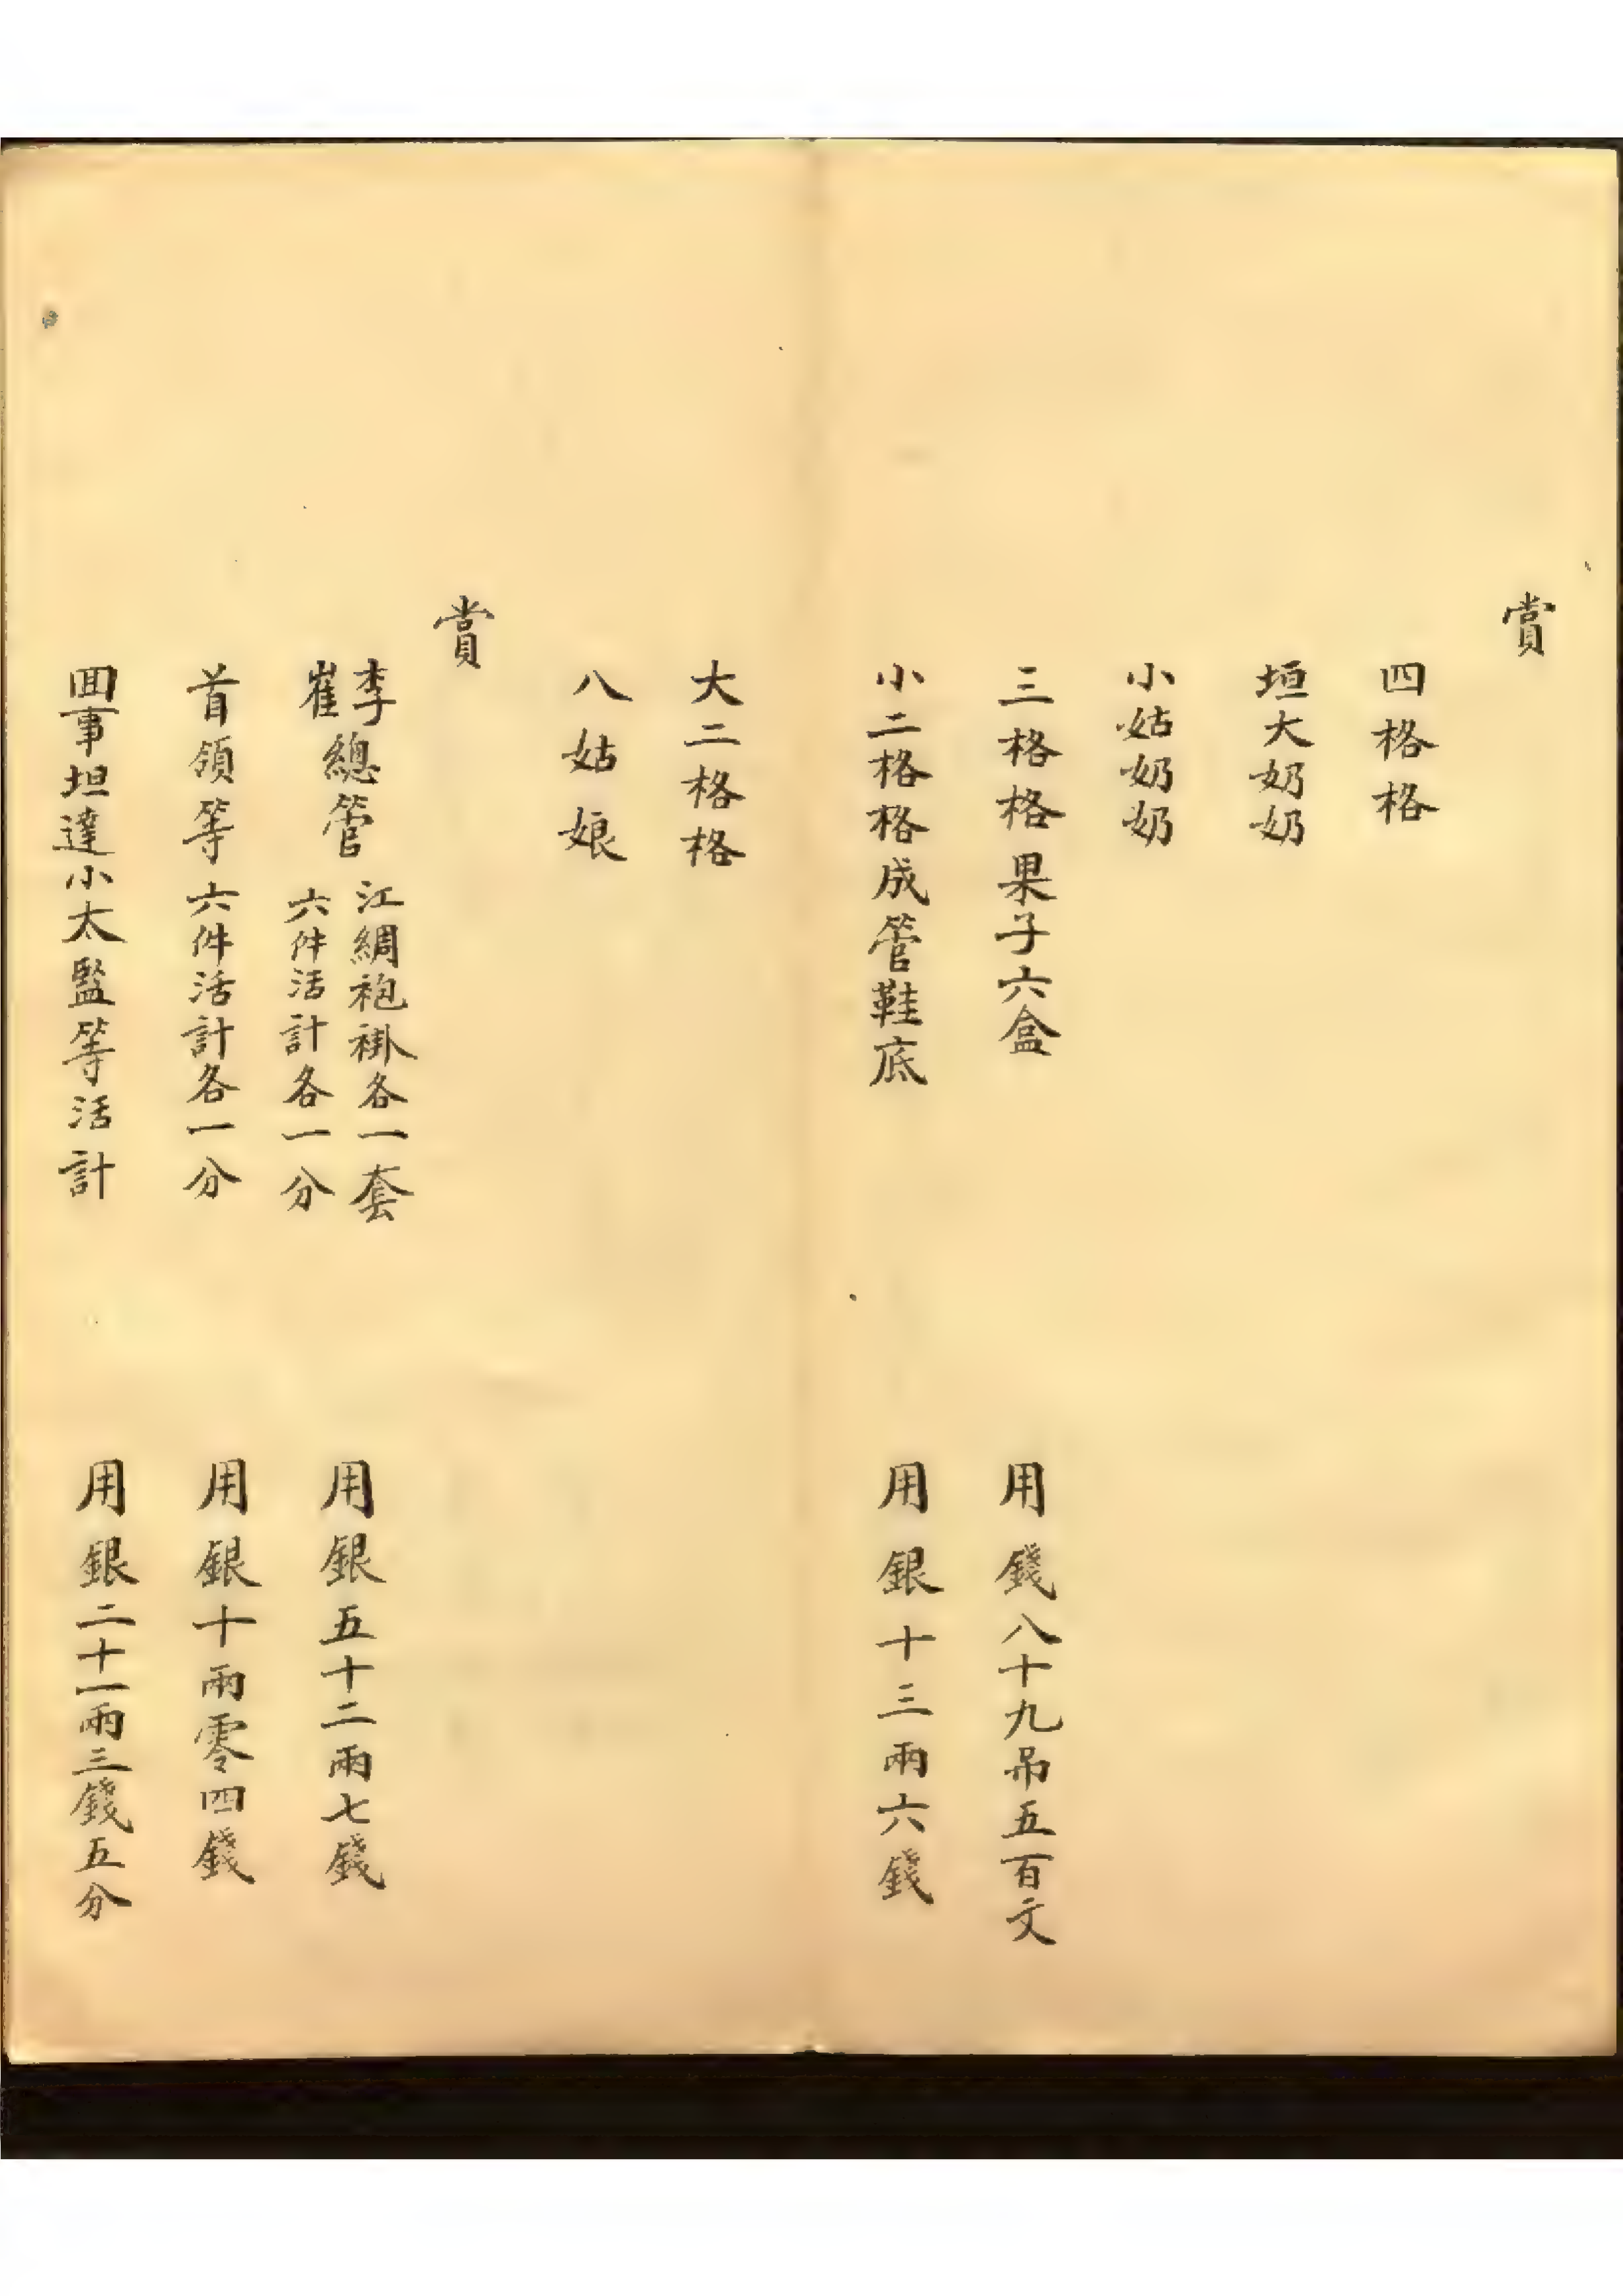 賞
四格格
垣大奶奶
小姑奶奶
三格格果子六盒 用錢八十九吊五百文
小二格格成管鞋底 用銀十三兩六錢
大二格格
八姑娘
賞
李崔總管 江綢袍褂各一套 六件活計各一分 用銀五十二兩七錢
首領等六件活計各一分 用銀十兩零四錢
回事坦達小太監等活計 用銀二十一兩三錢五分